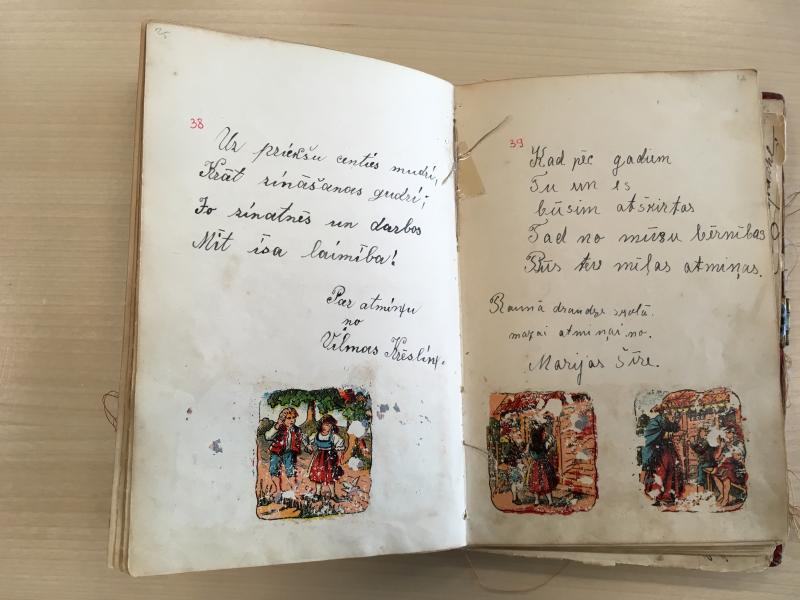 38
Uz priekšu centies mudri,
Krāt zināšanas gudri;
Jo zinatnēs un darbos
Mīt īsa laimība!
Par atmiņu
no
Vilmas Krēsliņ.
39
Kad pēc gadiem
Tu un es
būsim atšķirtas
Tad no mūsu bērnības
Būs tev mīļas atmiņas.
Raunā draudze skolā.
mazai atmiņai no.
Marijas Šīre.